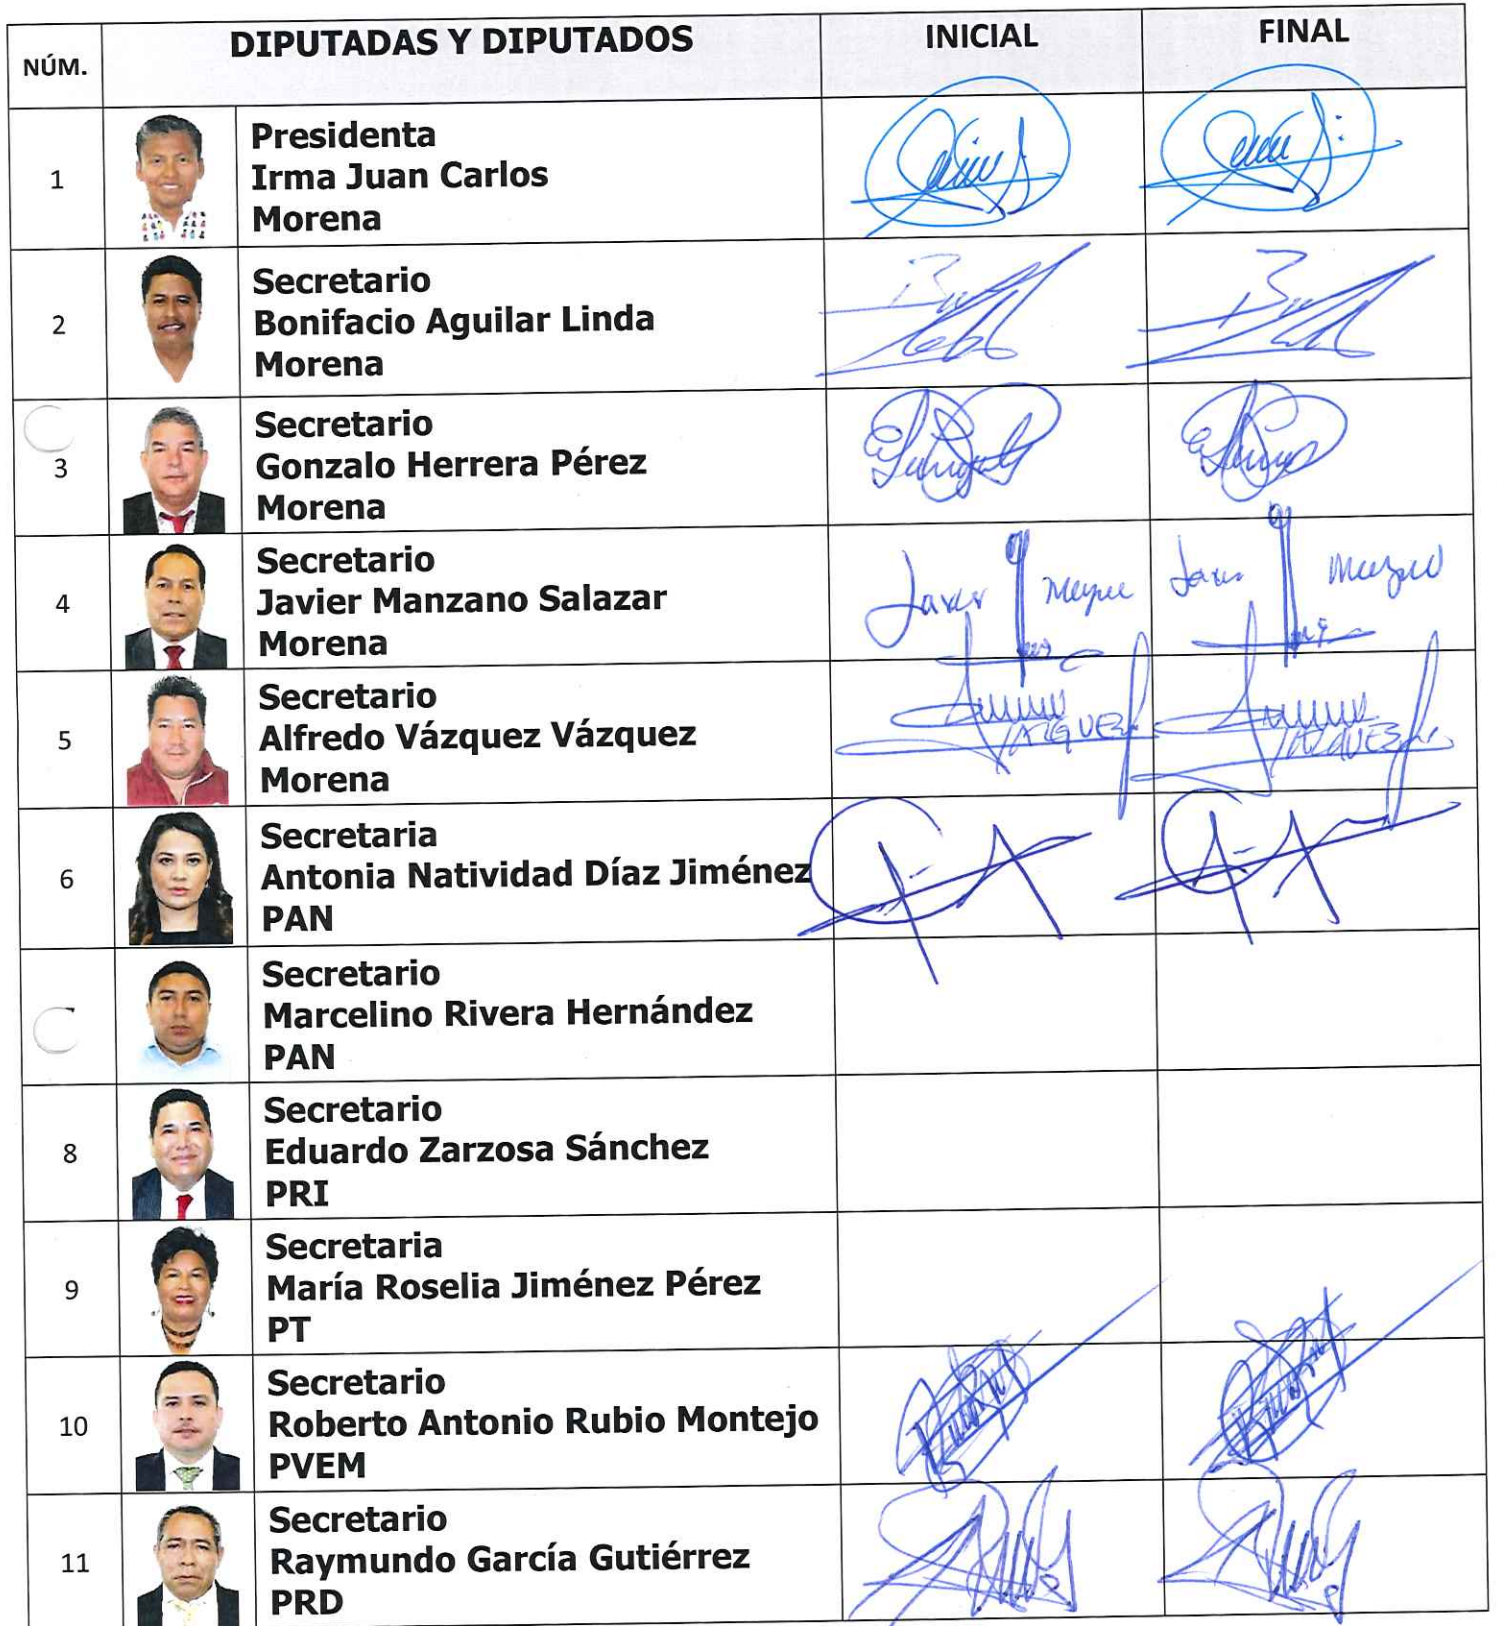 NÚM. DIPUTADAS Y DIPUTADOS INICIAL FINAL
1
Presidenta
Irma Juan Carlos
Morena
2
Secretario
Bonifacio Aguilar Linda
Morena
3
Secretario
Gonzalo Herrera Pérez
Morena
4
Secretario
Javier Manzano Salazar
Morena
5
Secretario
Alfredo Vázquez Vázquez
Morena
6
Secretaria
Antonia Natividad Díaz Jiménez
PAN
Secretario
Marcelino Rivera Hernández
PAN
8
Secretario
Eduardo Zarzosa Sánchez
PRI
9
Secretaria
María Roselia Jiménez Pérez
PT
10
Secretario
Roberto Antonio Rubio Montejo
PVEM
11
Secretario
Raymundo García Gutiérrez
PRD